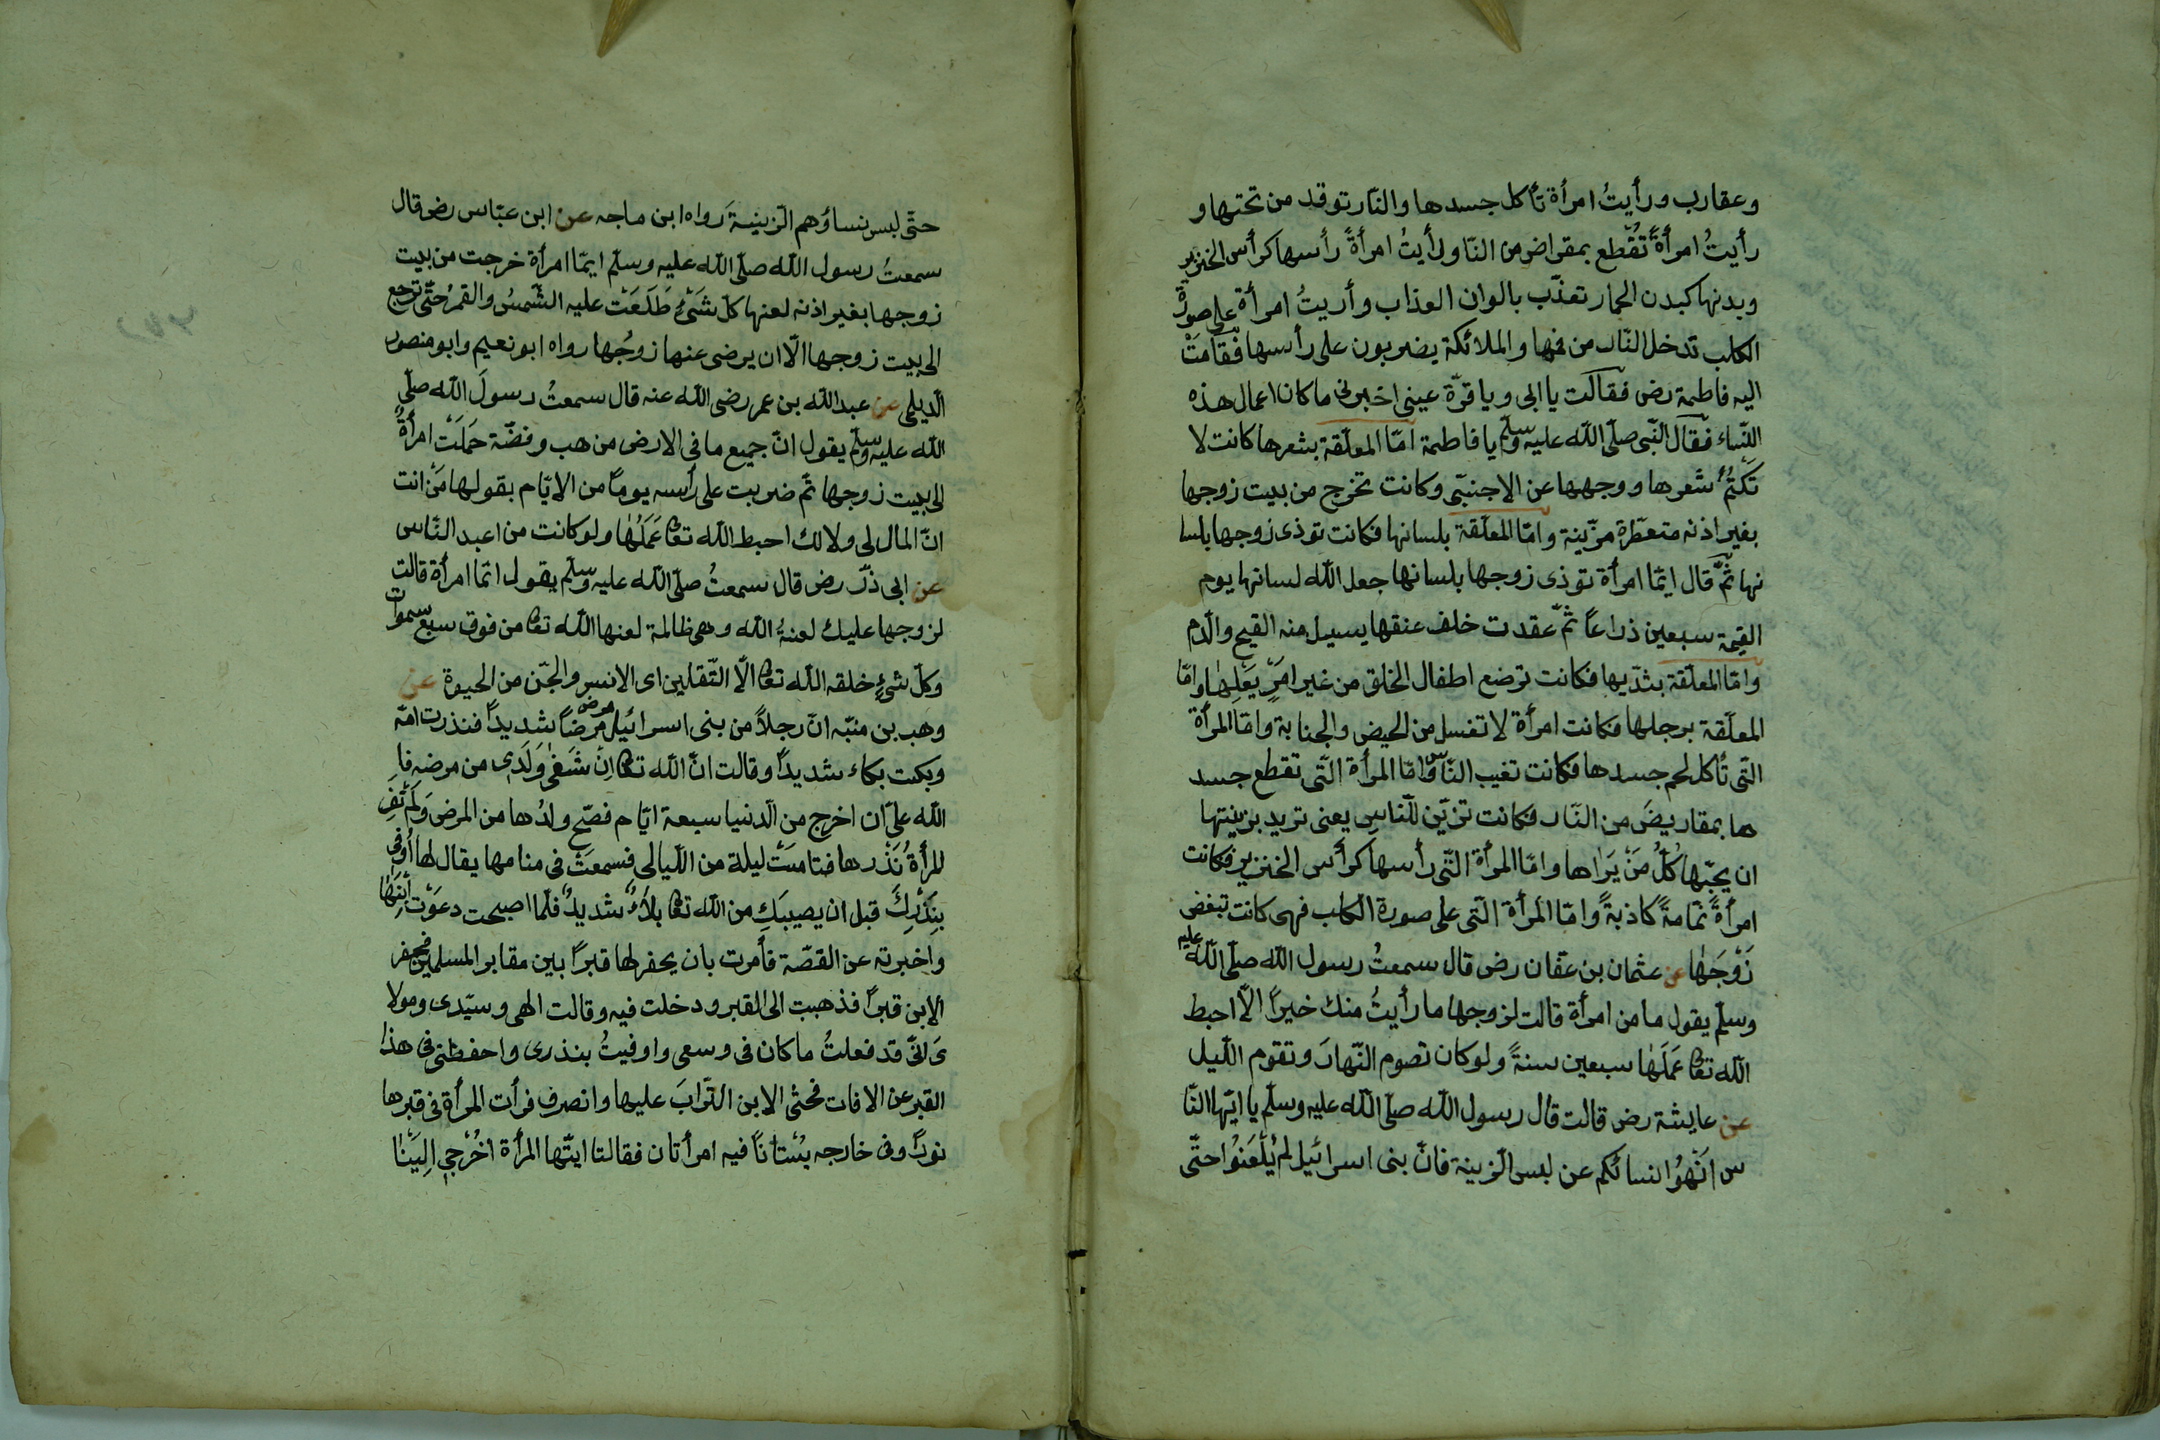 وعقارب ورأيتُ امرأة تأكل جسدها والنّار توقد من تحتها و
رأيتُ امرأةً تُقْطع بمقراض من النّار ورأيتُ امرأةً رأسها كرأس الخنزير
وبدنها كبدن الحمار تعذّب بالوان العذاب وأريتُ امرأة على صورة
الكلب تدخل النّار من فمها والملائكة يضربون على رأسها فقامَتْ
اليه فاطمة رض فقالت يا ابى ويا قرّة عينى اخبرنى ما كان اعمال هذه
اللنّساء فقال النّبى صلّى اللّه عليه وسلّم يا فاطمة امّا المعلّقة بشعرها كانت لا
تَكْتُمُ شعرها ووجهها عن الاجنبّى وكانت تخرج من بيت زوجها
بغير اذنه متعطّرة مزّينة وامّا المعلّقة بلسانها فكانت توذى زوجها بلسا
نها ثمّ قال ايّما امرأة توذى زوجها بلسانها جعل اللّه لسانها يوم
القيمة سبعين ذراعاً ثمّ عقدت خلف عنقها يسيل منه القيح والّدم
وامّا المعلّقة بثدّيها فكانت توضع اطفال الخلق من غير امَرِ بَعْلِهٰا وامّا
المعلّقة برجلها فكانت امرأة لا تغسل من الحيض والجنابة وامّا المرأة
التّى تأكل لحم جسدها فكانت تغيب النّاس وامّا المرأة التّى تقطع جسد
ها بمقاريضَ من النّار فكانت تزيّن للّناسِ يعنى تريد بزينتها
ان يحبّها كُلُّ مَنْ يَرٰاها وامّا المرأة التّى رأسها كرأس الخنزير فكانت
امرأةً نمّامةً كاذبةً وامّا المرأة الّتى على صورة الكلب فهى كانت تبغض
زَوْجَهٰا عن عثمان بن عفّان رض قال سمعتُ رسول اللّه صلّى اللّه عليه
وسلّم يقول ما من امرأة قالت لزوجها ما رأيتُ منك خيراً الاّ احبط
اللّه تعالى عَمَلَهٰا سبعين سنةً ولو كان تصوم النّهارَ وتقوم اللّيل
عن عايشة رض قالت قال رسول اللّه صلّى اللّه عليه وسلّم يا ايّها النّا
س انَهْوُا نسائكم عن لبس الزينة فانّ بنى اسرائيل لم يُلْعَنُوا حتّى
حتّى لبس نساؤهم الّزينةَ رواه ابن ماجه عن ابن عبّاس رض قال
سمعتُ رسول اللّه صلّى اللّه عليه وسلّم ايّما امرأة خرجت من بيت
زوجها بغير اذنه لعنها كلّ شَىْءٍ طَلَعَتْ عليه الشّمسُ والقمرُ حتّى ترجع
الى بيت زوجها الّا ان يرضى عنها زوجُها رواه ابو نعيم وابو منصور
الّديلمى عن عبد اللّه بن عمر رضى اللّه عنه قال سمعتُ رسولَ اللّه صلّى
اللّه عليه وسلّم يقول انّ جميع ما فى الارض من هب وفضّة حَمَلَتْ امرأةٌ
الى بيت زوجها ثمّ ضربت على رأسه يوماً من الايّام بقولها مَنْ انت
انّ المال لى ولا لك احبط اللّه تعالى عَمَلُهٰا ولو كانت من اعبد النّاس
عن ابى ذرّ رض قال سمعتُ صلّى اللّه عليه وسلّم يقول ايّما امرأة قالت
لزوجها عليك لعنةُ اللّه وهى ظالمة لعنها اللّه تعالى من فوق سبع سموات
وكلّ شىءٍ خلقه اللّه تعالى الّا الثّقلين اى الانس والجّن من الحيوة عن
وهب بن منبّه انّ رجلاً من بنى اسرائيل مرض مرضاً شديداً فنذرت امّه
وبكت بكاء شديداً وقالت انّ اللّه تعالى اِنْ شَفٰى وَلَدِى من مرضه فا
اللّه علىّ ان اخرج من الّدنيا سبعة ايّام فصّح ولدُها من المرض وَلَم تَفِ
المرأةُ نَذْرها فنامَتْ ليلة من اللّيالى فسمعَتْ فى منامها يقال لها اُوفى
بِنَذْرِكَ قبل ان يصيبَكِ من اللّه تعالى بلاءٌ شديدٌ فلّما اصبحت دعَوَتْ اِبْنَهٰا
واخبرته عن القصّة فأمرت بان يحفر لها قبراً بين مقابر المسلمين فحفر
الابن قبراً فذهبت الى القبر ودخلت فيه وقالت الهى وسيّدى ومولا
ىَ انّى قد فعلتُ ما كان فى وسعى واوفيتُ بنذرى واحفظنى فى هذا
القبر عن الافات فحثى الابن التّرابَ عليها وانصرف فرأت المرأة فى قبرها
نوراً وفى خارجه بُسْتاناً فيه امرأتان فقالتا ايتّها المرأة اخُرْجِى اِلَيْنٰا